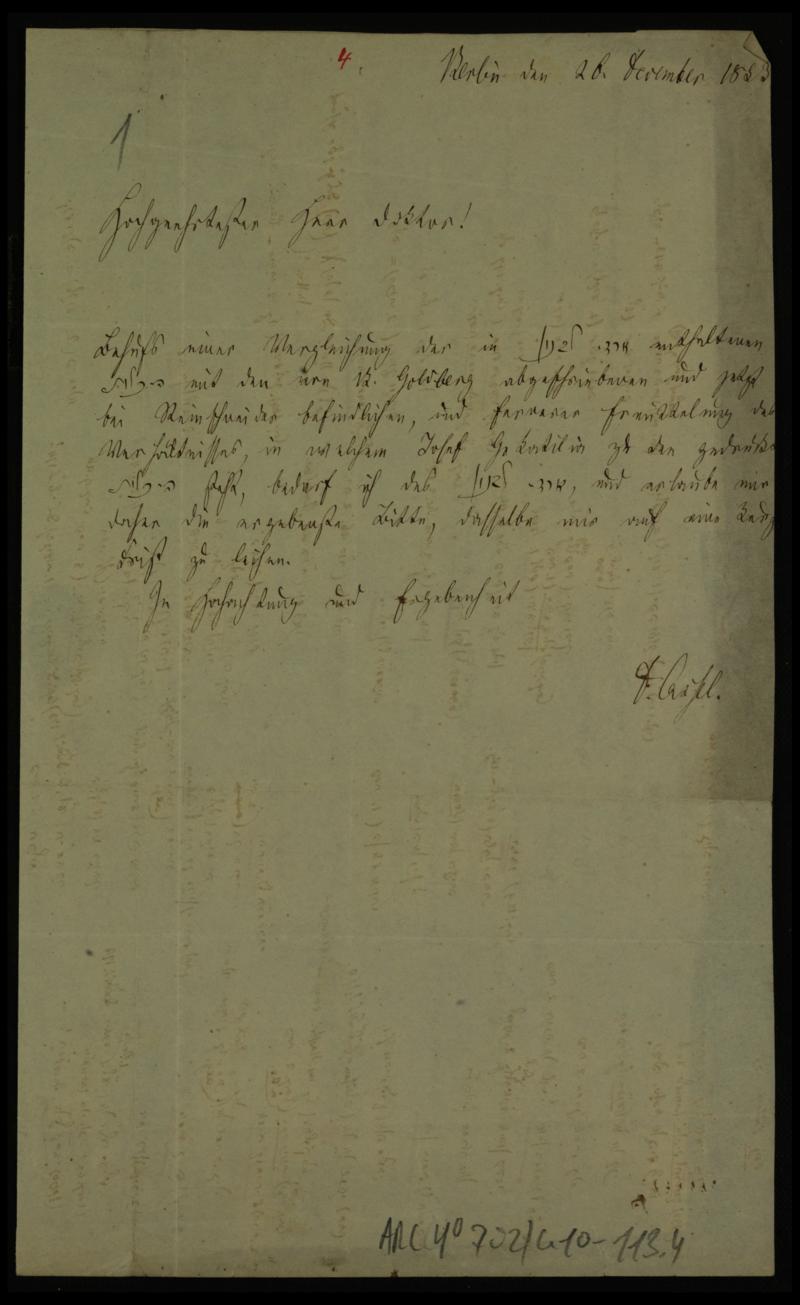 4.
Berlin den 26. December 18
1
Hochgeehrtester Herr Doktor!
Behufs einer Vergleichung der in enthaltenen
mit den von B. Goldberg abgeschriebenen und jetzt
bei befindlichen, und fernerer Ermittelung des
Verhältnisses, in welchem Josef Gekatilia zu den gedruckt
steht, bedarf ich des, und erlaube mir
daher die ergebenste Bitte, dasselbe mir auf eine kurze
Frist zu leihen.
In Hochachtung und Ergebenheit
D. Cassel.
ARC 4° 792/G10-113.4